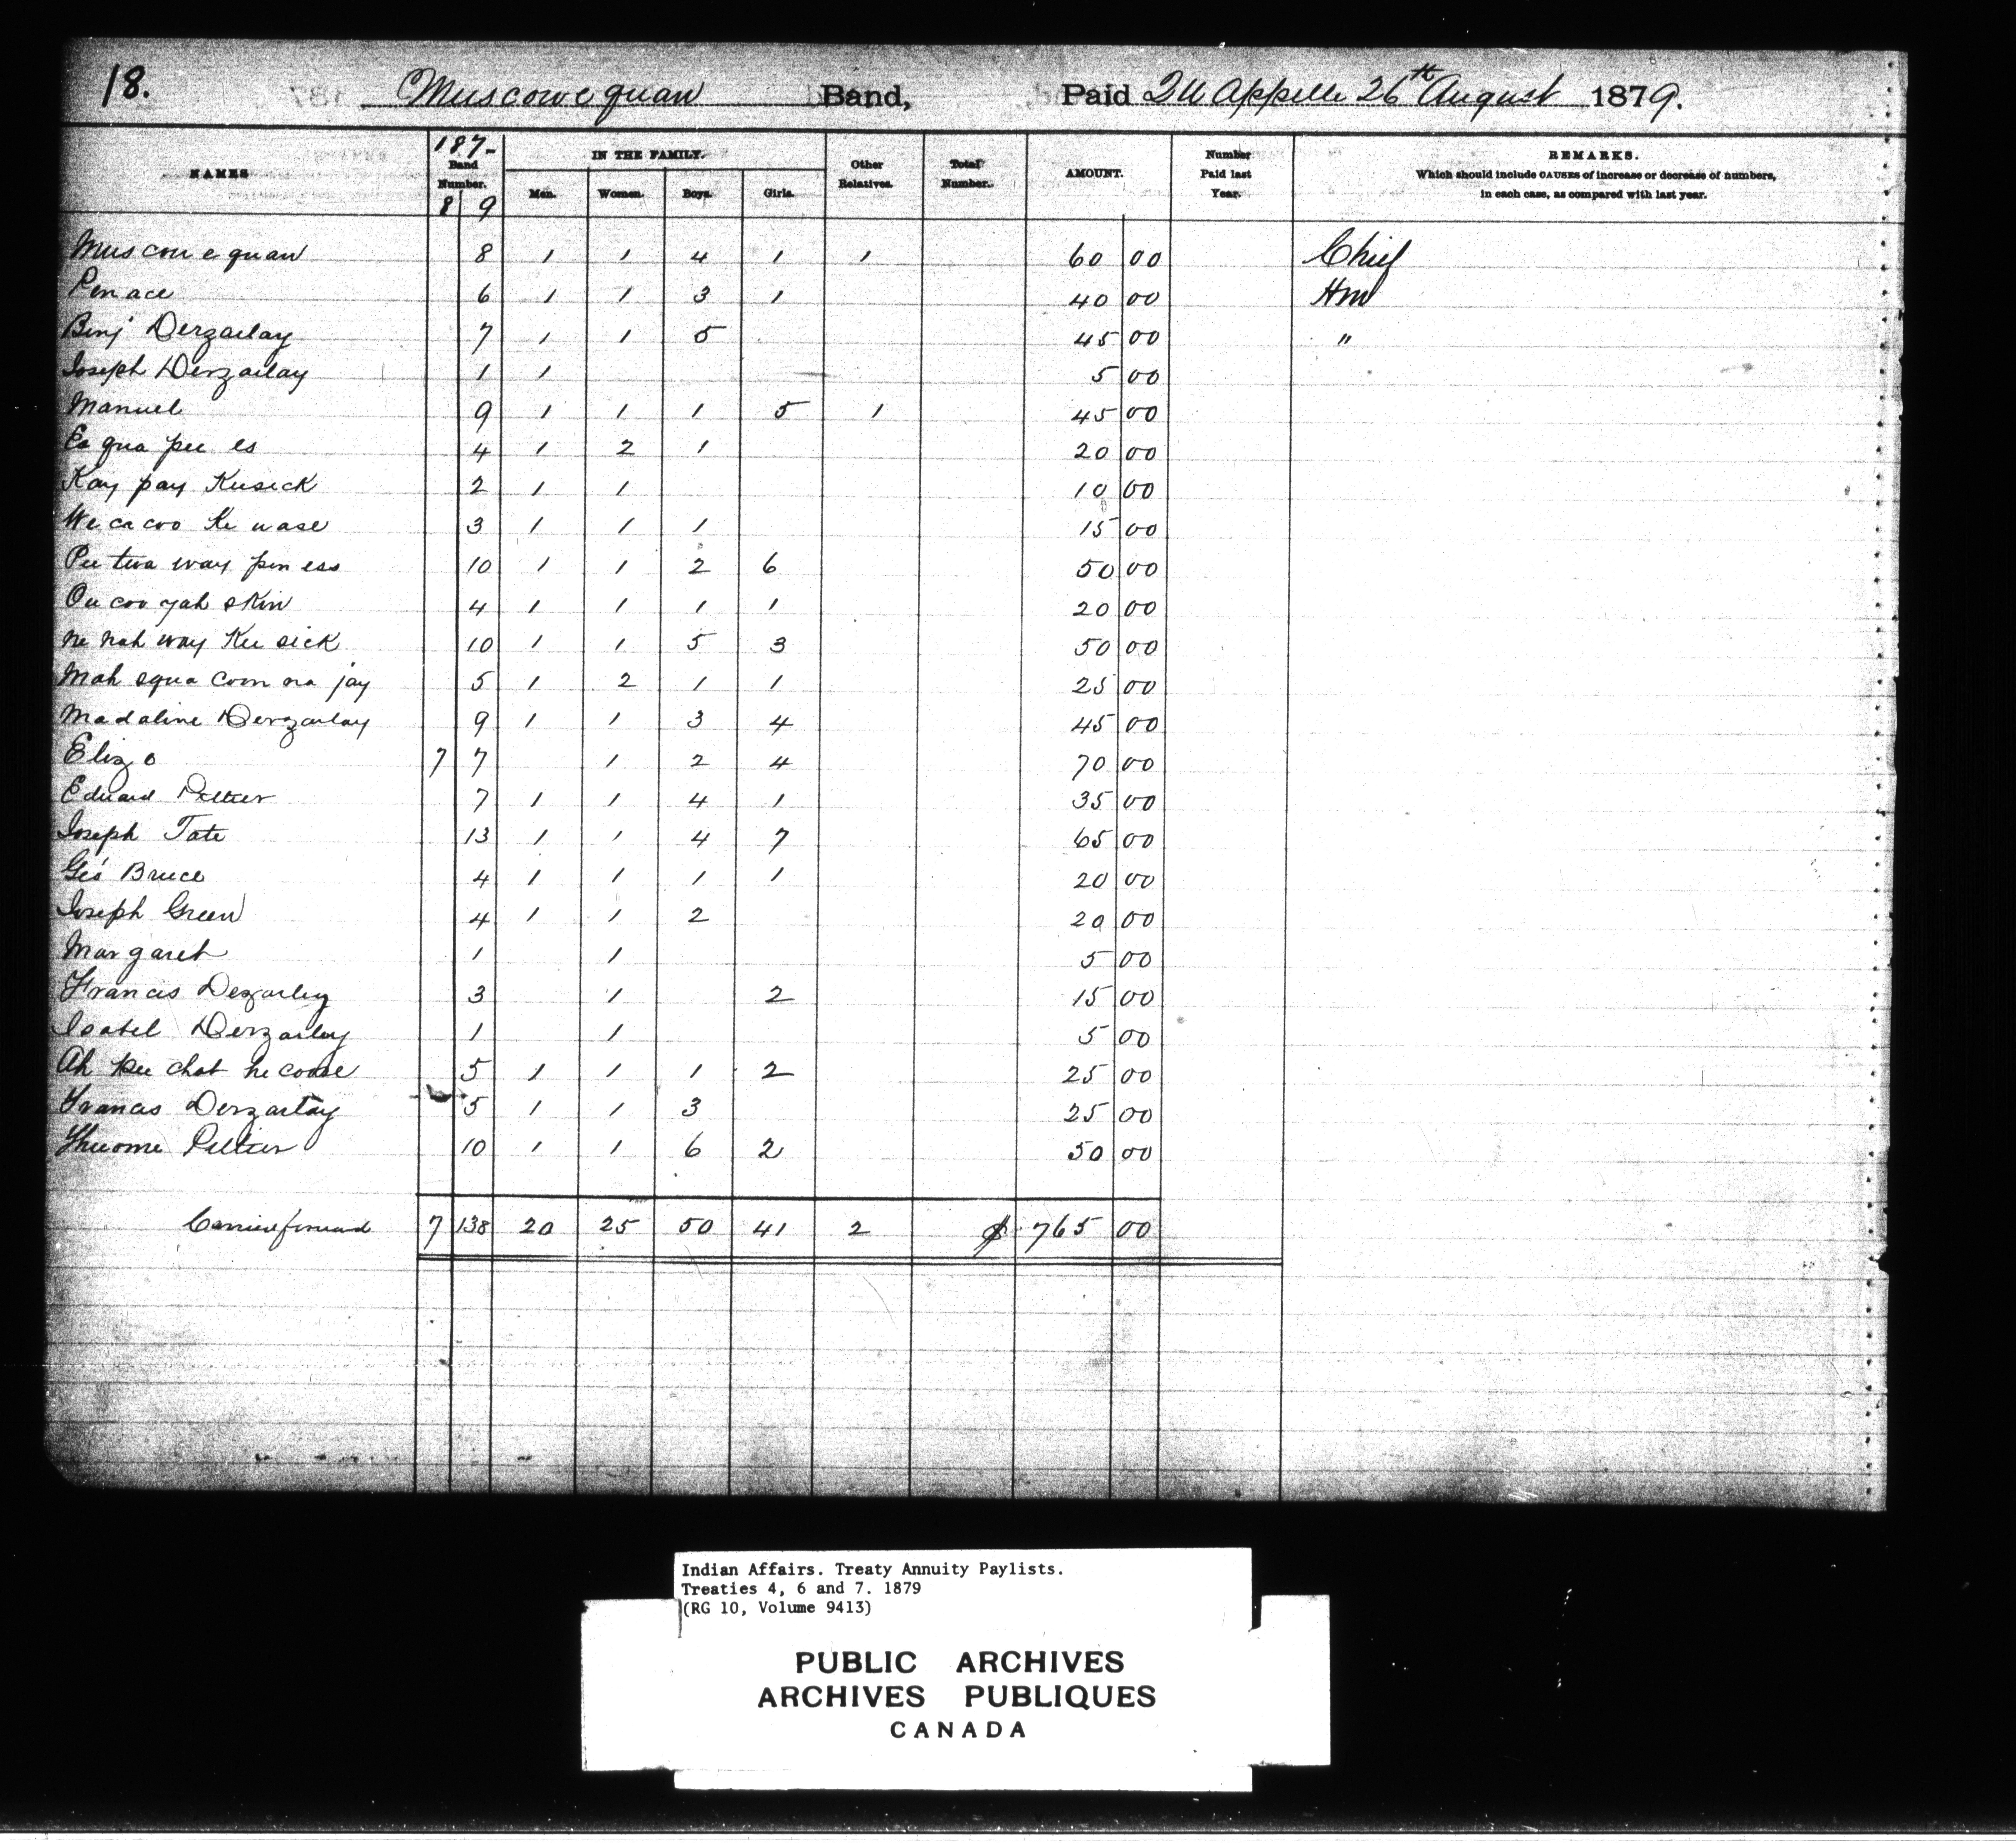 18. Muscowequan Band, Paid Qu Appelle 26th August 1879.
NAMES 187- Band Number. 8 9 IN THE FAMILY. Men. Women. Boys. Girls. Other Relatives. Total Number. AMOUNT. Number Paid last Year. REMARKS. Which should include CAUSES of increase or decrease of numbers, in each case, as compared with last year.
Muscowequan 8 1 1 4 1 1 60 00 Chief
Penace 6 1 1 3 1 40 00 Hm
Benj Derzarlay 7 1 1 5 45 00 "
Joseph Derzarlay 1 1 5 00
Manuel 9 1 1 1 5 1 45 00
Es qua pee es 4 1 2 1 20 00
Kay pay Kusick 2 1 1 10 00
We ca coo Ke wase 3 1 1 1 15 00
Pee twa way pin ess 10 1 1 2 6 50 00
Ou coo yah skin 4 1 1 1 1 20 00
Ne nah way Kee sick 10 1 1 5 3 50 00
Mah squa coom na jay 5 1 2 1 1 25 00
Madaline Derzarlay 9 1 1 3 4 45 00
Eliza 7 7 1 2 4 70 00
Edward Peltier 7 1 1 4 1 35 00
Joseph Tate 13 1 1 4 7 65 00
Geo Bruce 4 1 1 1 1 20 00
Joseph Green 4 1 1 2 20 00
Margaret 1 1 5 00
Francis Dezarley 3 1 2 15 00
Isabel Derzarley 1 1 5 00
Ah kee chat he coose 5 1 1 1 2 25 00
Francis Derzarlay 5 1 1 3 25 00
Peltier 10 1 1 6 2 50 00
Carried forward 7 138 20 25 50 41 2 $ 765 00
Indian Affairs. Treaty Annuity Paylists.
Treaties 4, 6 and 7. 1879
(RG 10, Volume 9413)
PUBLIC ARCHIVES
ARCHIVES PUBLIQUES
CANADA